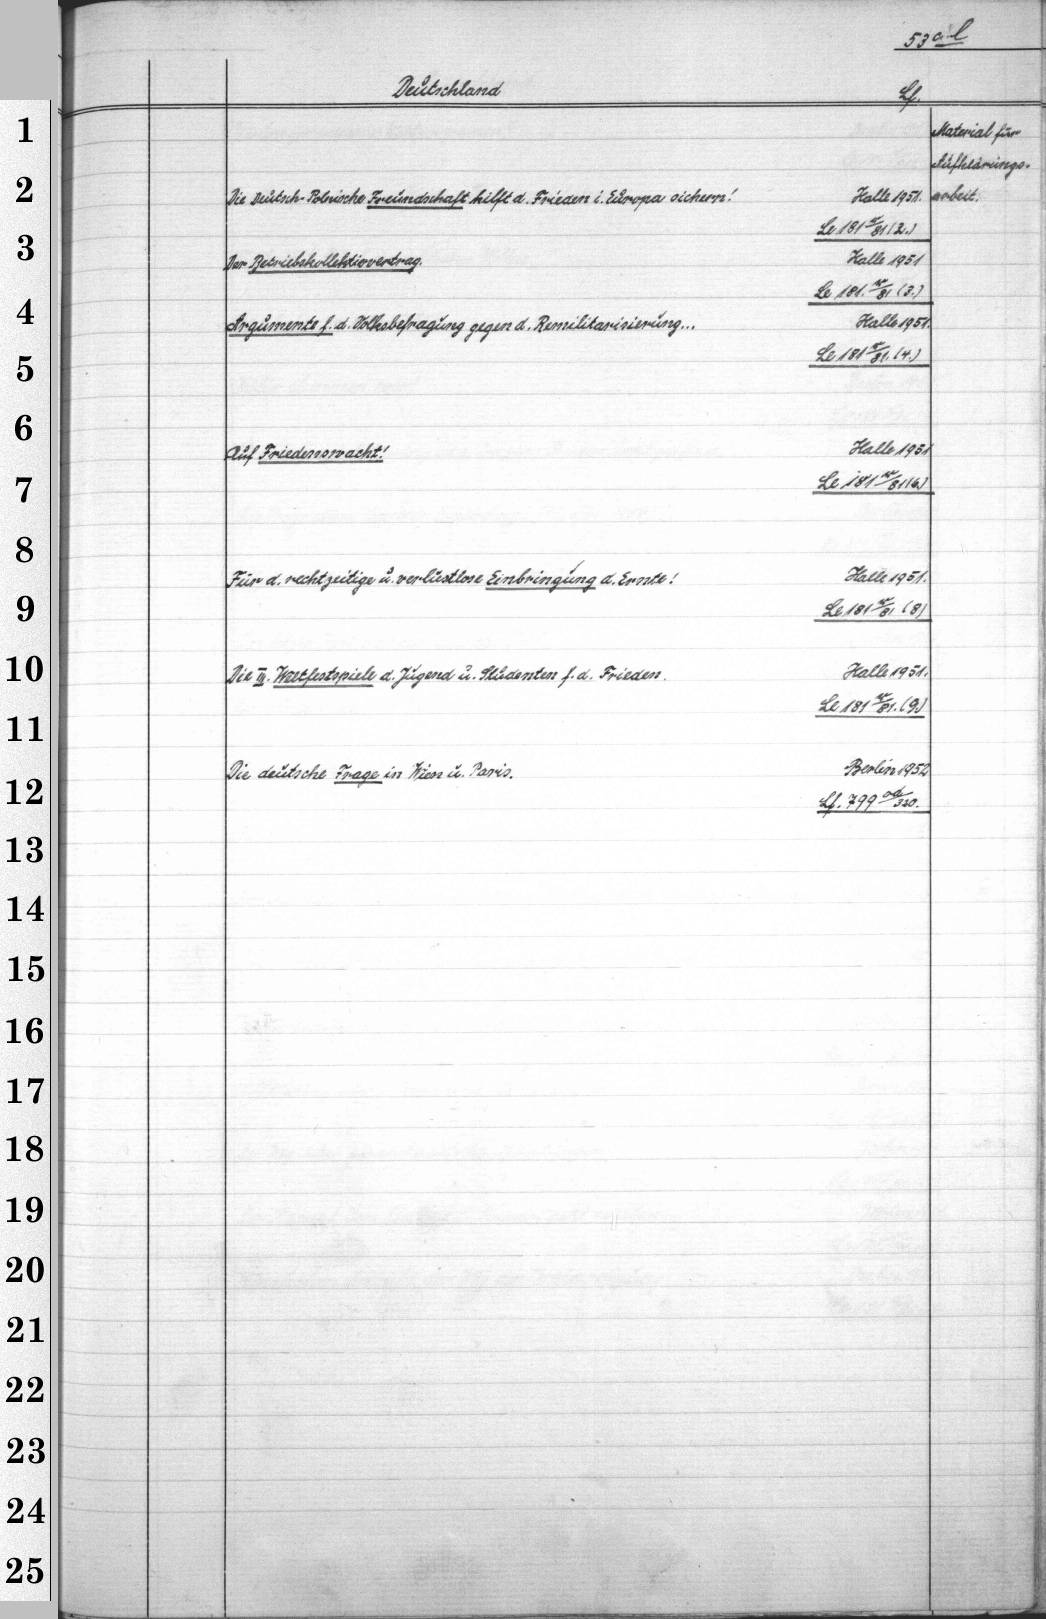 53 a-l
Deutschland Lf.
Material für
Aufklärungs-
Die Deutsch-Polnische Freundschaft hilft d. Frieden i. Europa sichern! Halle 1951. arbeit.
Le 181 w/81 (2.)
Der Betriebskollektivvertrag. Halle 1951
Le 181. w/81 (3.)
Argumente f. d. Volksbefragung gegen d. Remilitarisierung... Halle 1951.
Le 181 w/81. (4.)
Auf Friedenswacht! Halle 1951
Le 181 w/81 (6.)
Für d. rechtzeitige u. verlustlose Einbringung d. Ernte! Halle 1951.
Le 181 w/81. (8)
Die III. Weltfestspiele d. Jugend u. Studenten f. d. Frieden. Halle 1951.
Le 181 w/81. (9.)
Die deutsche Frage in Wien u. Paris. Berlin 1952
Lf. 799 od/320.
1
2
3
4
5
6
7
8
9
10
11
12
13
14
15
16
17
18
19
20
21
22
23
24
25